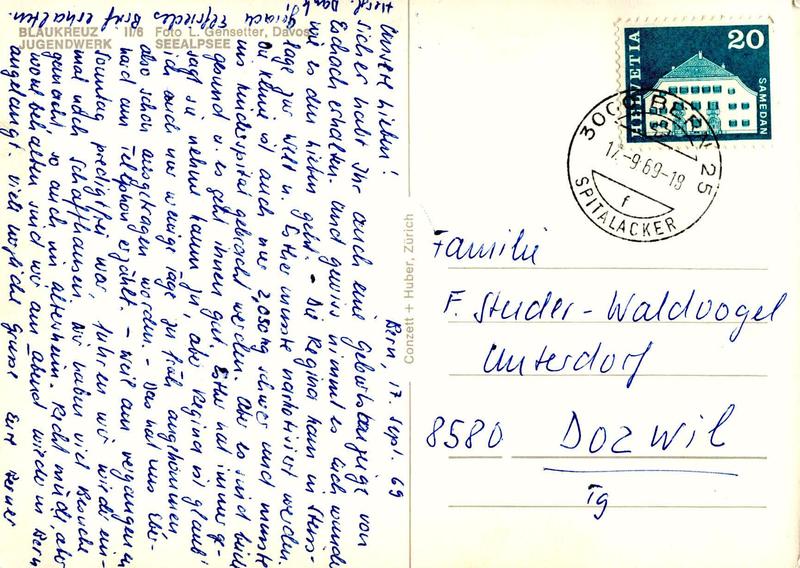 Bern, 17. Sept. 69
Unsere Lieben!
Sicher habt Ihr auch eine Geburtsanzeige von
Eschach erhalten. Und gewiss nimmt es Euch wunder
wie es den Lieben geht. - Die Regina kam in Steiss-
lage zur Welt u. Esther musste narkotisiert werden.
Die Kleine ist auch nur 2,050 kg schwer und musste
ins Kinderspital gebracht werden. Aber es sind beide
gesund u. es geht ihnen gut. Esther hat immer ge-
sagt sie nehme kaum zu, aber Regina ist glaub'
ich auch nur wenige Tage zu früh angekommen
also schon ausgetragen worden. - Das hat uns Eber-
hard am Telephon erzählt. - Weil am vergangenen
Sonntag predigtfrei war, fuhren wir wieder ein-
mal nach Schaffhausen. Wir haben viel Besuche
gemacht so auch im Altersheim. Recht müde, aber
wohlbehalten sind wir am Abend wieder in Bern
angelangt. Viele herzliche Grüsse Eure
Herzl. Dank
Elfriedes Brief erhalten.
BLAUKREUZ II/6 Foto L. Gensetter, Davos
JUGENDWERK SEEALPSEE
Conzett + Huber, Zürich
HELVETIA
20
SAMEDAN
3000 BERN 25
17.-9.69-18
f
SPITALACKER
Familie
F. Studer-Waldvogel
Unterdorf
8580 Dozwil
Tg